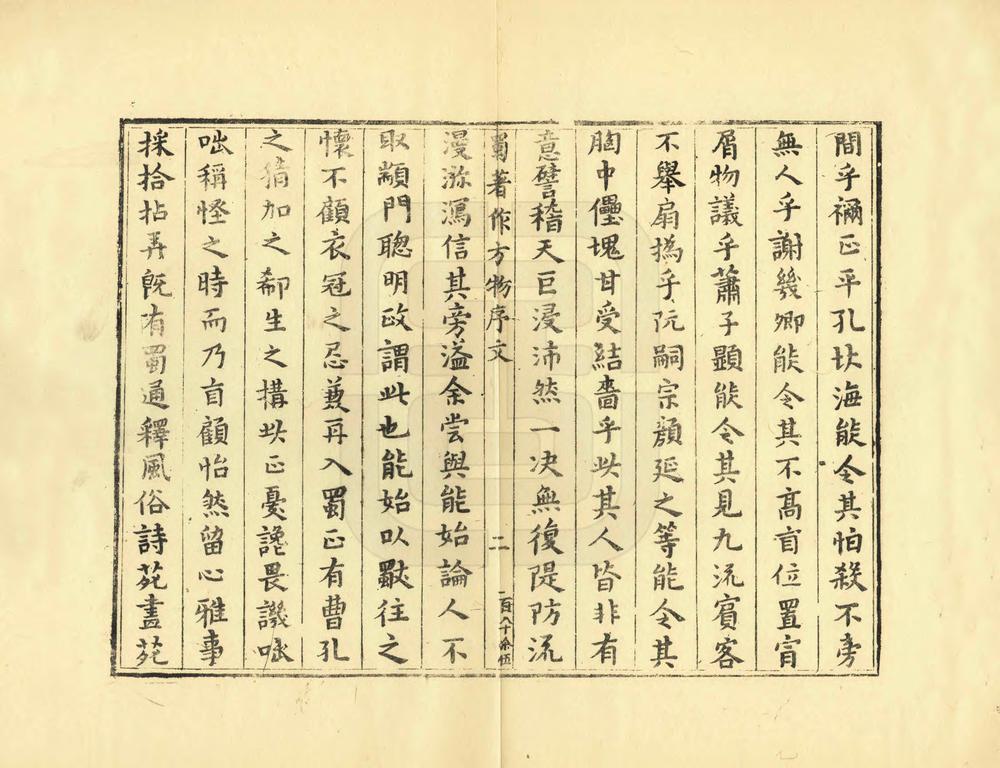 間乎禰正平孔北海能令其怕殺不旁
無人乎謝幾卿能令其不高盲位置甯
屑物議乎蕭子顯能令其見九流賓客
不舉扇撝乎阮嗣宗顏延之等能令其
胸中儡塊甘受結嗇乎此其人皆非有
意譬稽天巨浸沛然一决無復隄防流
蜀著作方物序文 二 一百八十柒伍
漫渀瀉信其旁溢余嘗與能始論人不
取顓門聦明政謂此也能始以厭徃之
懷不顧衣冠之忌兼再入蜀正有曹孔
之猜加之郗生之搆此正憂讒畏譏呶
咄稱怪之時而乃盲顧怡然留心雅事
採拾拈弄旣有蜀通釋風俗詩苑畫苑